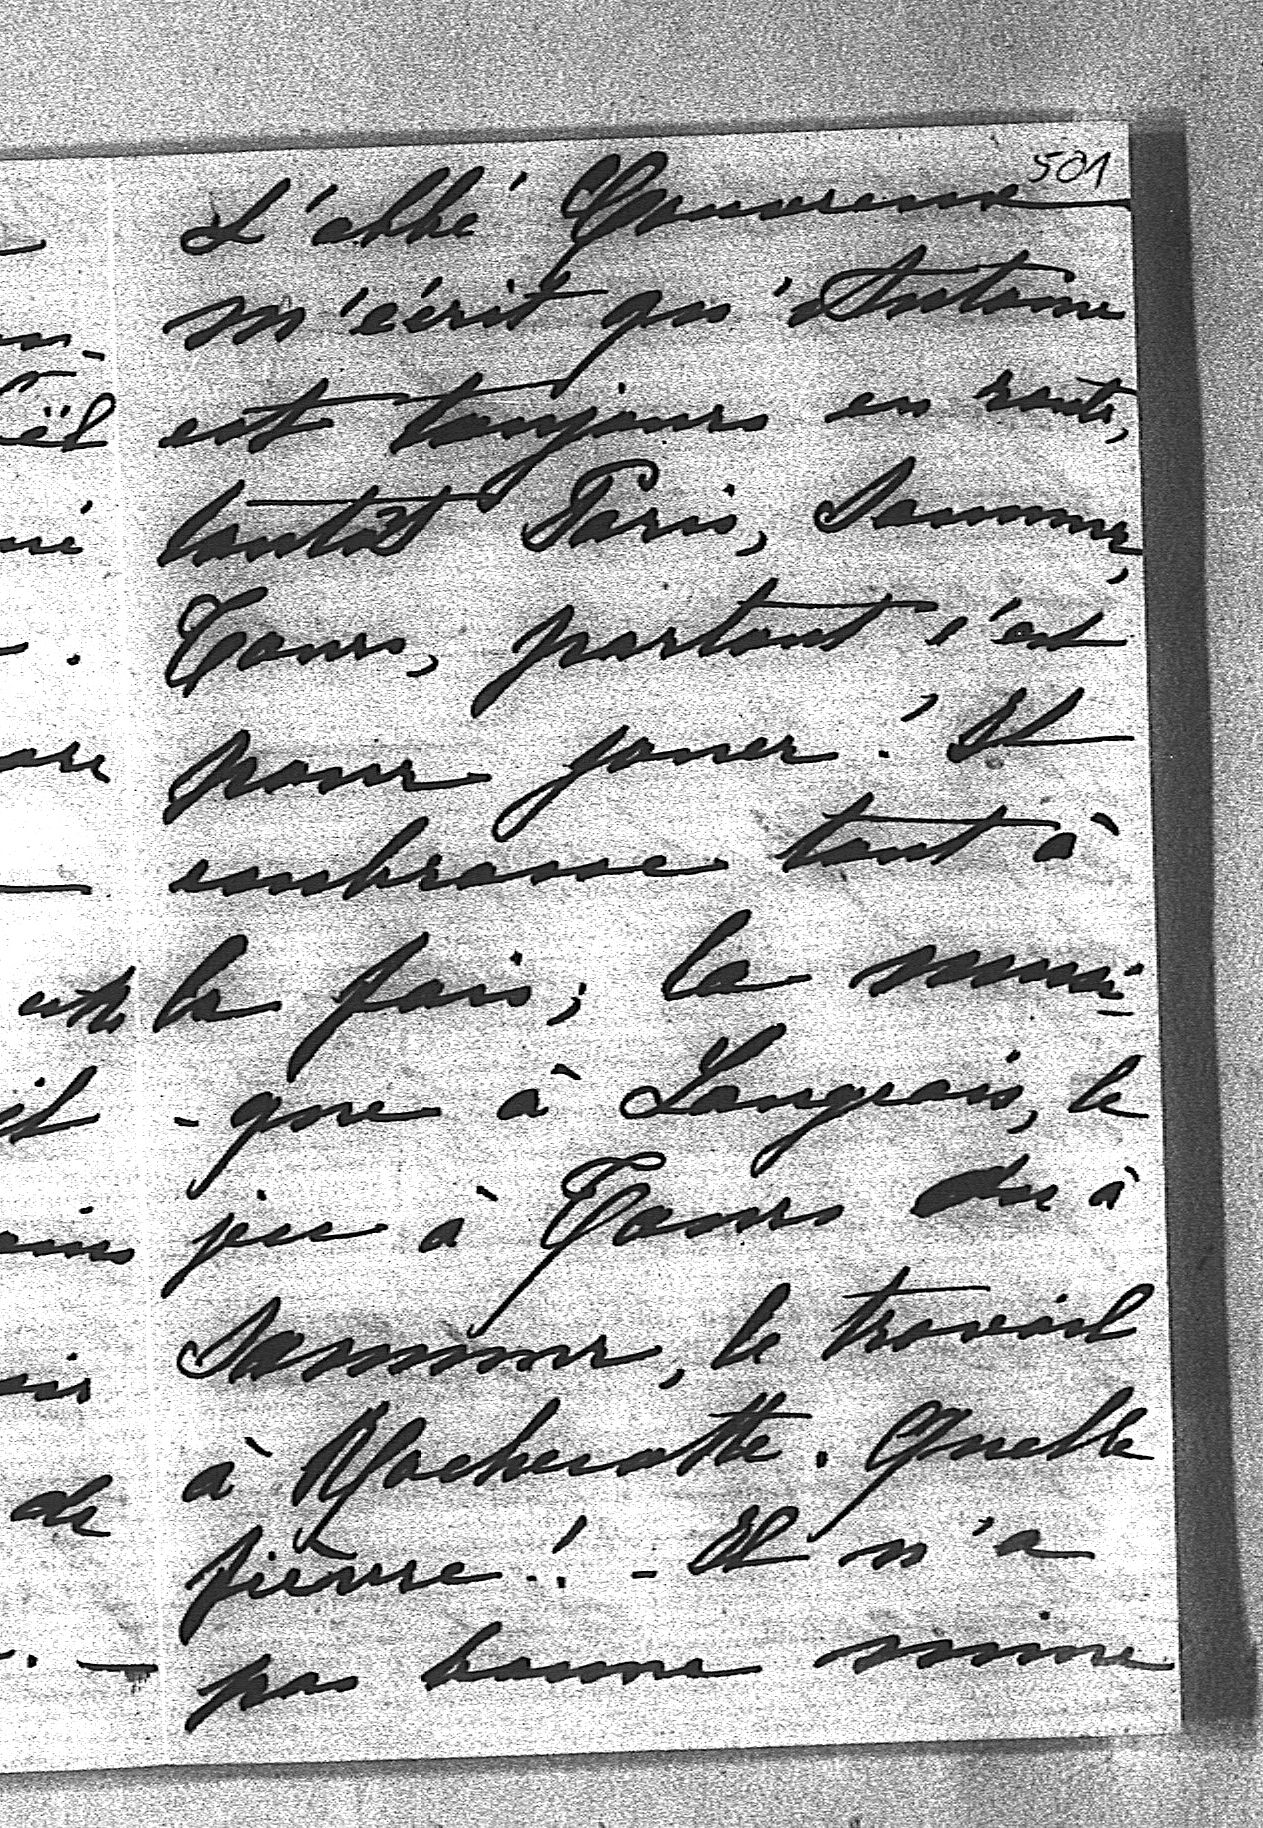 501
L'abbé
m'écrit qu'Antoine
est toujours en route,
tantôt Paris, Saumur,
Tours, partout c'est
pour jouer ! Il
embrasse tout à
la fois, la musi-
-que à Langeais, le
jeu à Tours ou à
Saumur, le travail
à Rochecotte. Quelle
fièvre ! - Il n'a
pas bonne mine